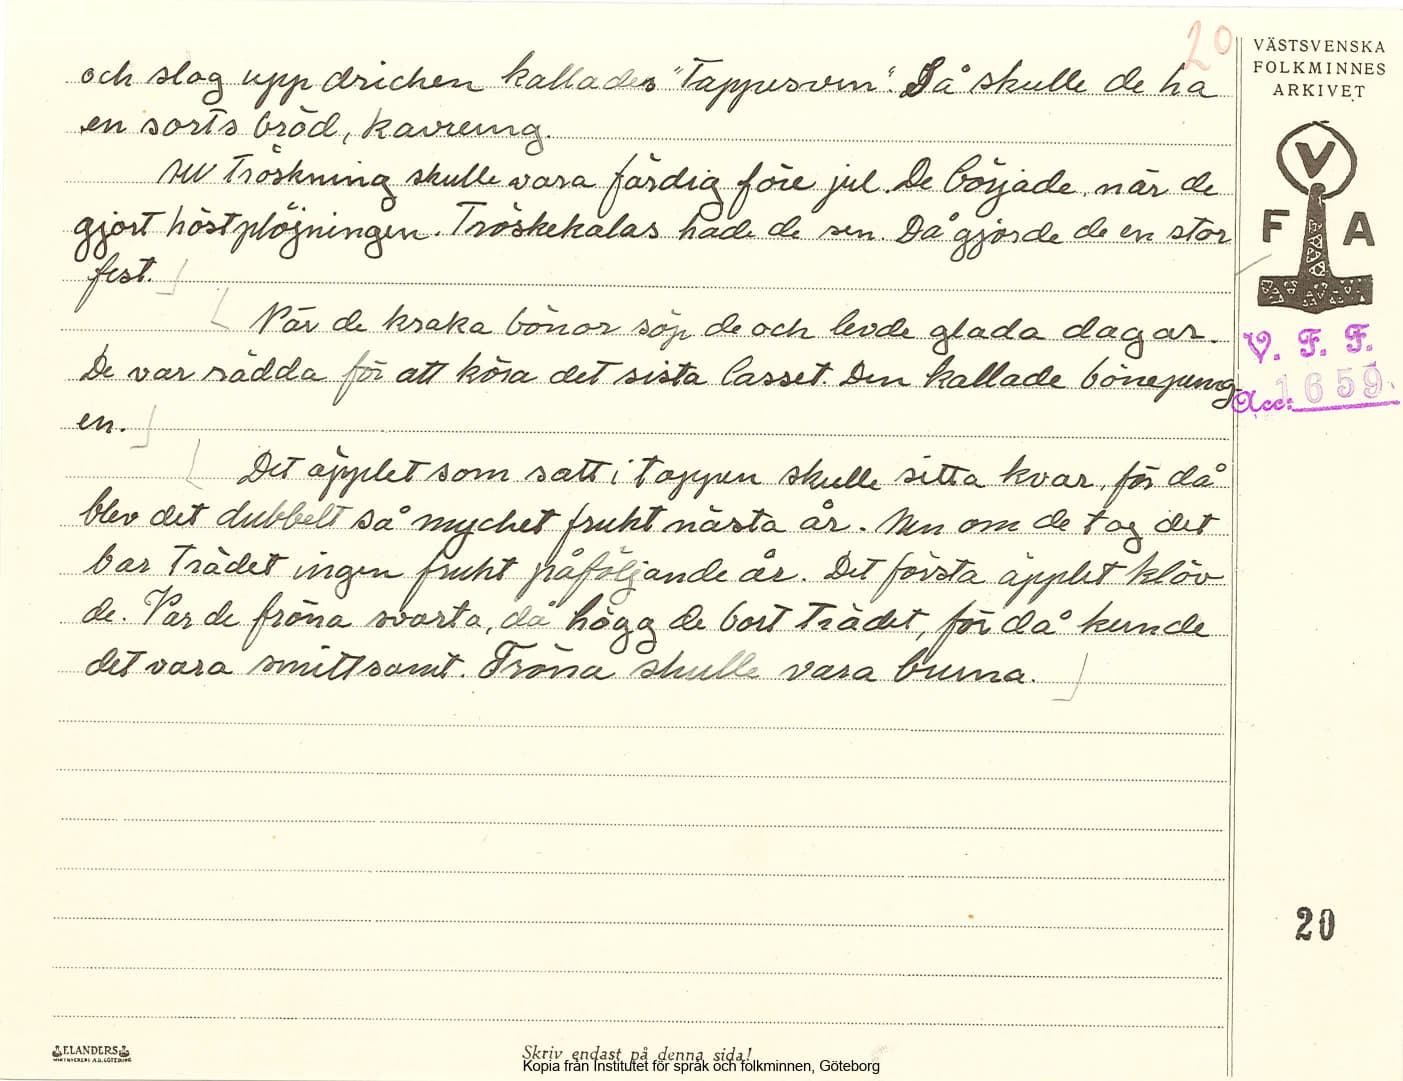 20
VÄSTSVENSKA
FOLKMINNES
ARKIVET
V
F A
V. F. F.
Acc: 1659.
och slog upp dricken kallades "Tappesven". Då skulle de ha
en sorts bröd, kavring.
All Tröskning skulle vara färdig före jul. De började, när de
gjort höstplöjningen. Tröskekalas hade de sen. Då gjorde de en stor
fest.
När de kraka bönor söp de och levde glada dagar.
De var rädda för att köra det sista lasset. Den kallade bönepung-
en.
Det äpplet som satt i toppen skulle sitta kvar, för då
blev det dubbelt så mycket frukt nästa år. Men om de tog det
bar trädet ingen frukt påföljande år. Det första äpplet klöv
de. Var de fröna svarta, då högg de bort trädet, för då kunde
det vara smittsamt. Fröna skulle vara bruna.
20
ELANDERS
Skriv endast på denna sida!
Kopia från Institutet för språk och folkminnen, Göteborg